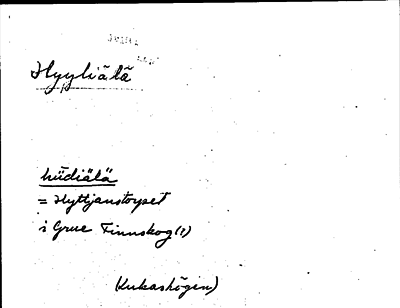 Hyyliälä
hüdiälä
= Hyttjanstorpet
i Grue Finnskog (?)
(Kukashögen)